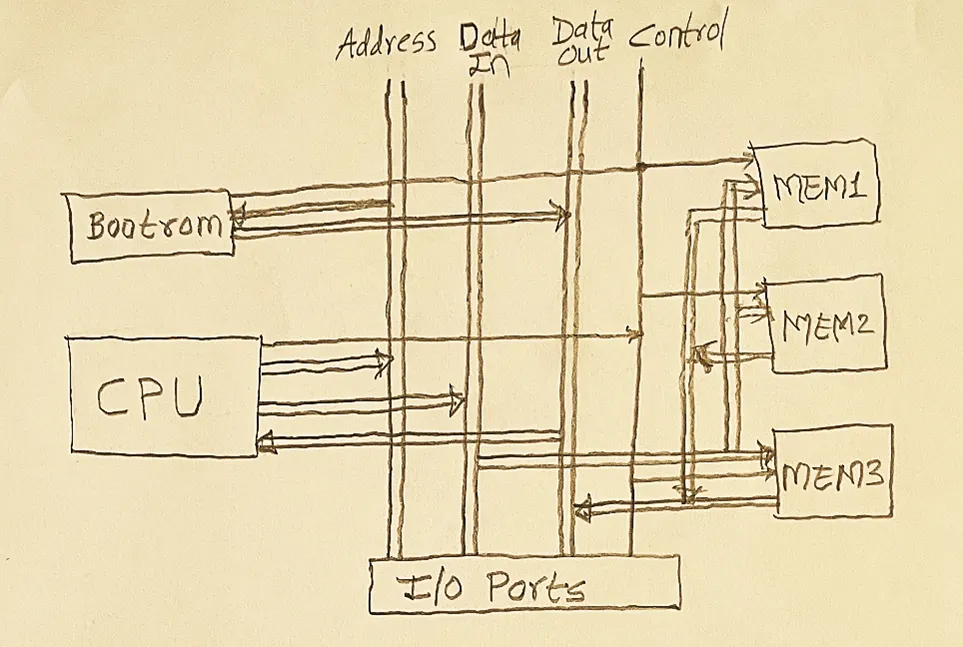 Address Data In Data Out Control
MEM1
Bootrom
MEM2
CPU
MEM3
I/O Ports